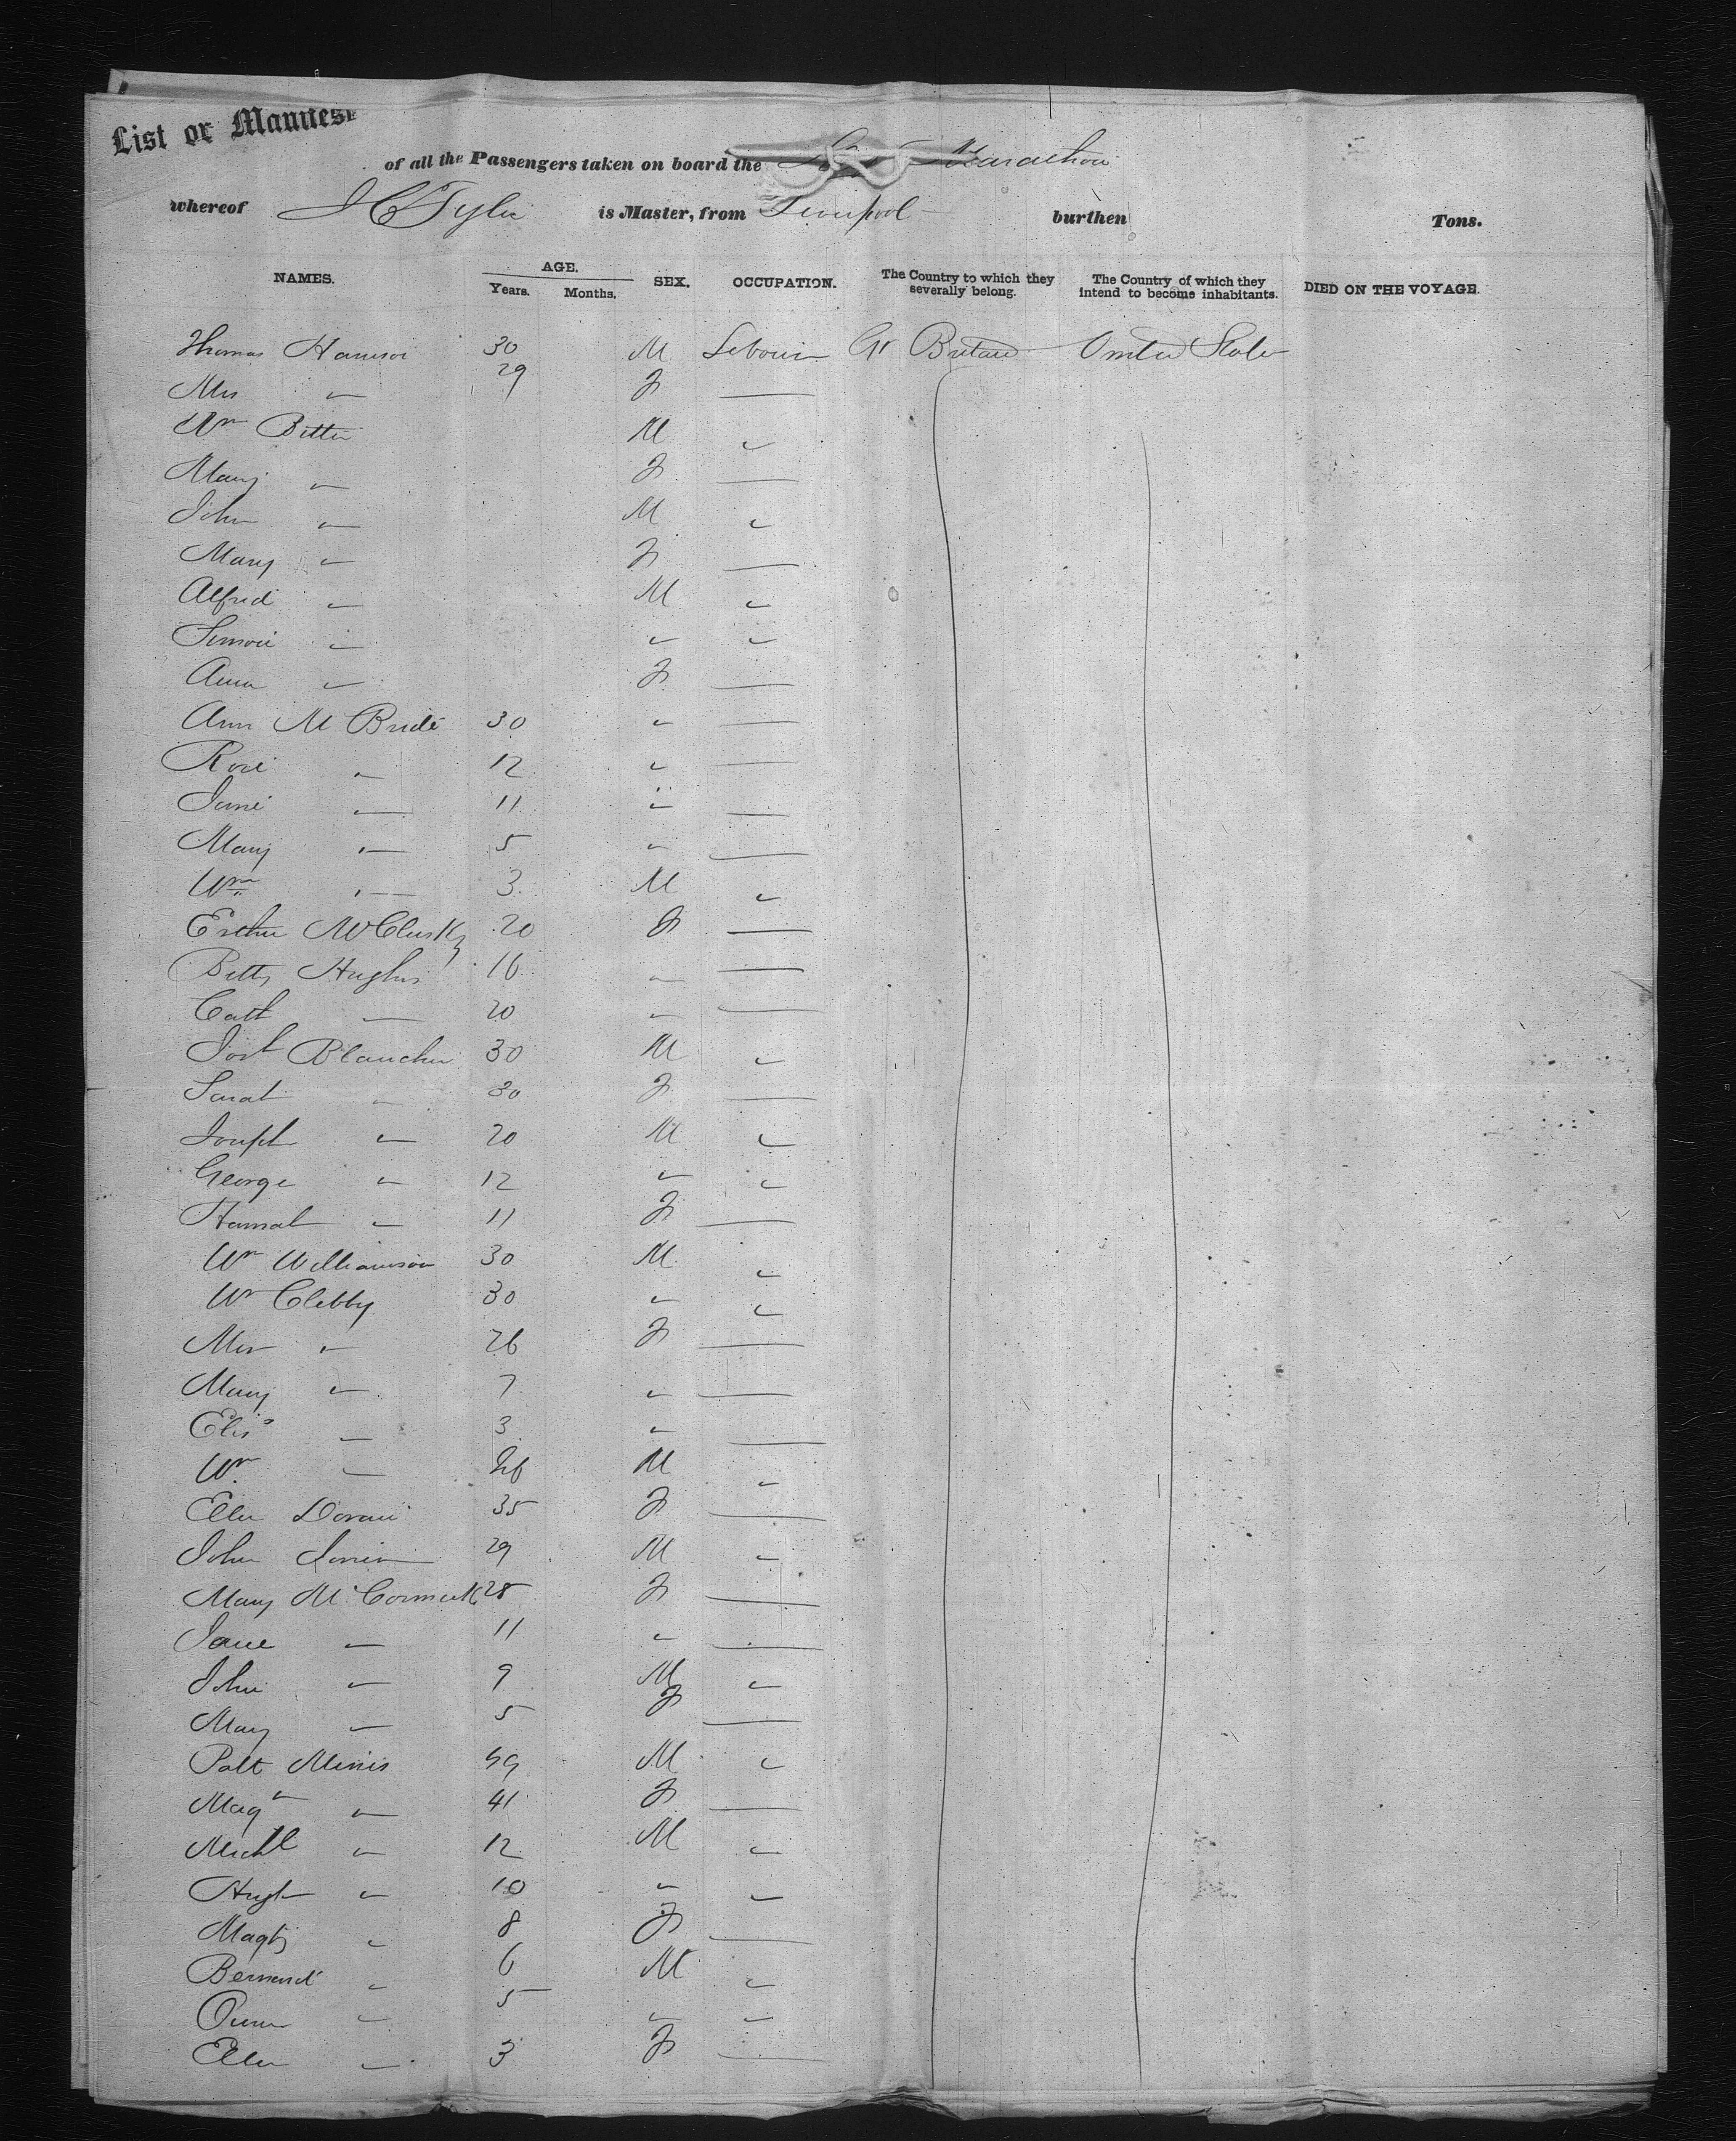 List or Manifest
of all the Passengers taken on board the Marathon
whereof J C Tyler is Master, from Liverpool burthen Tons.
NAMES. AGE. Years. Months. SEX. OCCUPATION. The Country to which they severally belong. The Country of which they intend to become inhabitants. DIED ON THE VOYAGE.
Thomas Harrison 30 M Labourer Gt Britain United States
Mrs " 29 F —
Wm M "
Mary " F —
John " M "
Mary " F —
Alfred " M "
Simon " " "
Anna " F —
Ann McBride 30 " —
Rose " 12 " —
Jane " 11 " —
Mary " 5 " —
Wm " 3 M "
Esther McClusky 20 F —
Betty Hughes 16 " —
Cath — 20 " —
Josh Blancher 30 M "
Sarah " 30 F —
Joseph " 20 M "
George " 12 " "
Hannah " 11 F —
Wm Williamson 30 M "
Wm Clebby 30 " "
Mrs " 26 F —
Mary " 7 " —
Elis " 3 " —
Wm " 26 M "
Ellen Doran 35 F —
John 29 M "
Mary McCormick 28 F —
Jane " 11 " —
John " 9 M "
Mary " 5 F —
Patt 59 M "
Magt " 41 F —
Michl " 12 M "
Hugh " 10 " "
Magt " 8 F —
Bernard " 6 M "
Owen " 5 " "
Ellen " 3 F —